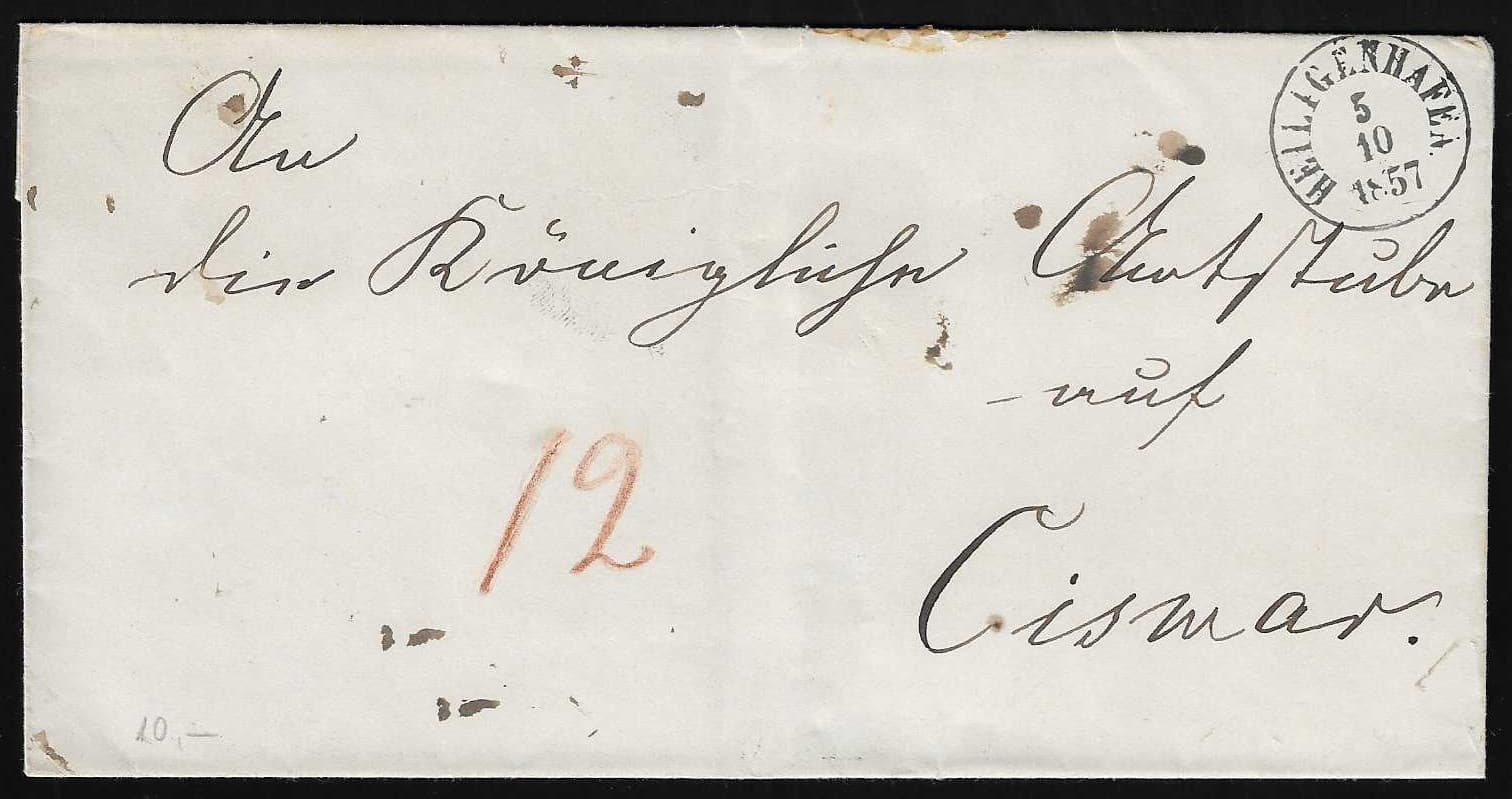 HEILIGENHAFEN.
5
10
1857
An
die Königliche Amtstube
auf
Cismar.
12
10,—